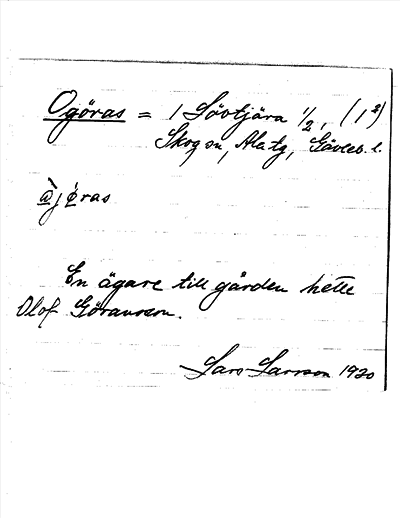 Ogöras = 1 Sövtjära 1/2, (1²)
Skog sn, Ala tg, Gävleb. l.
a̲j ø̲ras
En ägare till gården hette
Olof Göransson.
Lars Larsson 1920